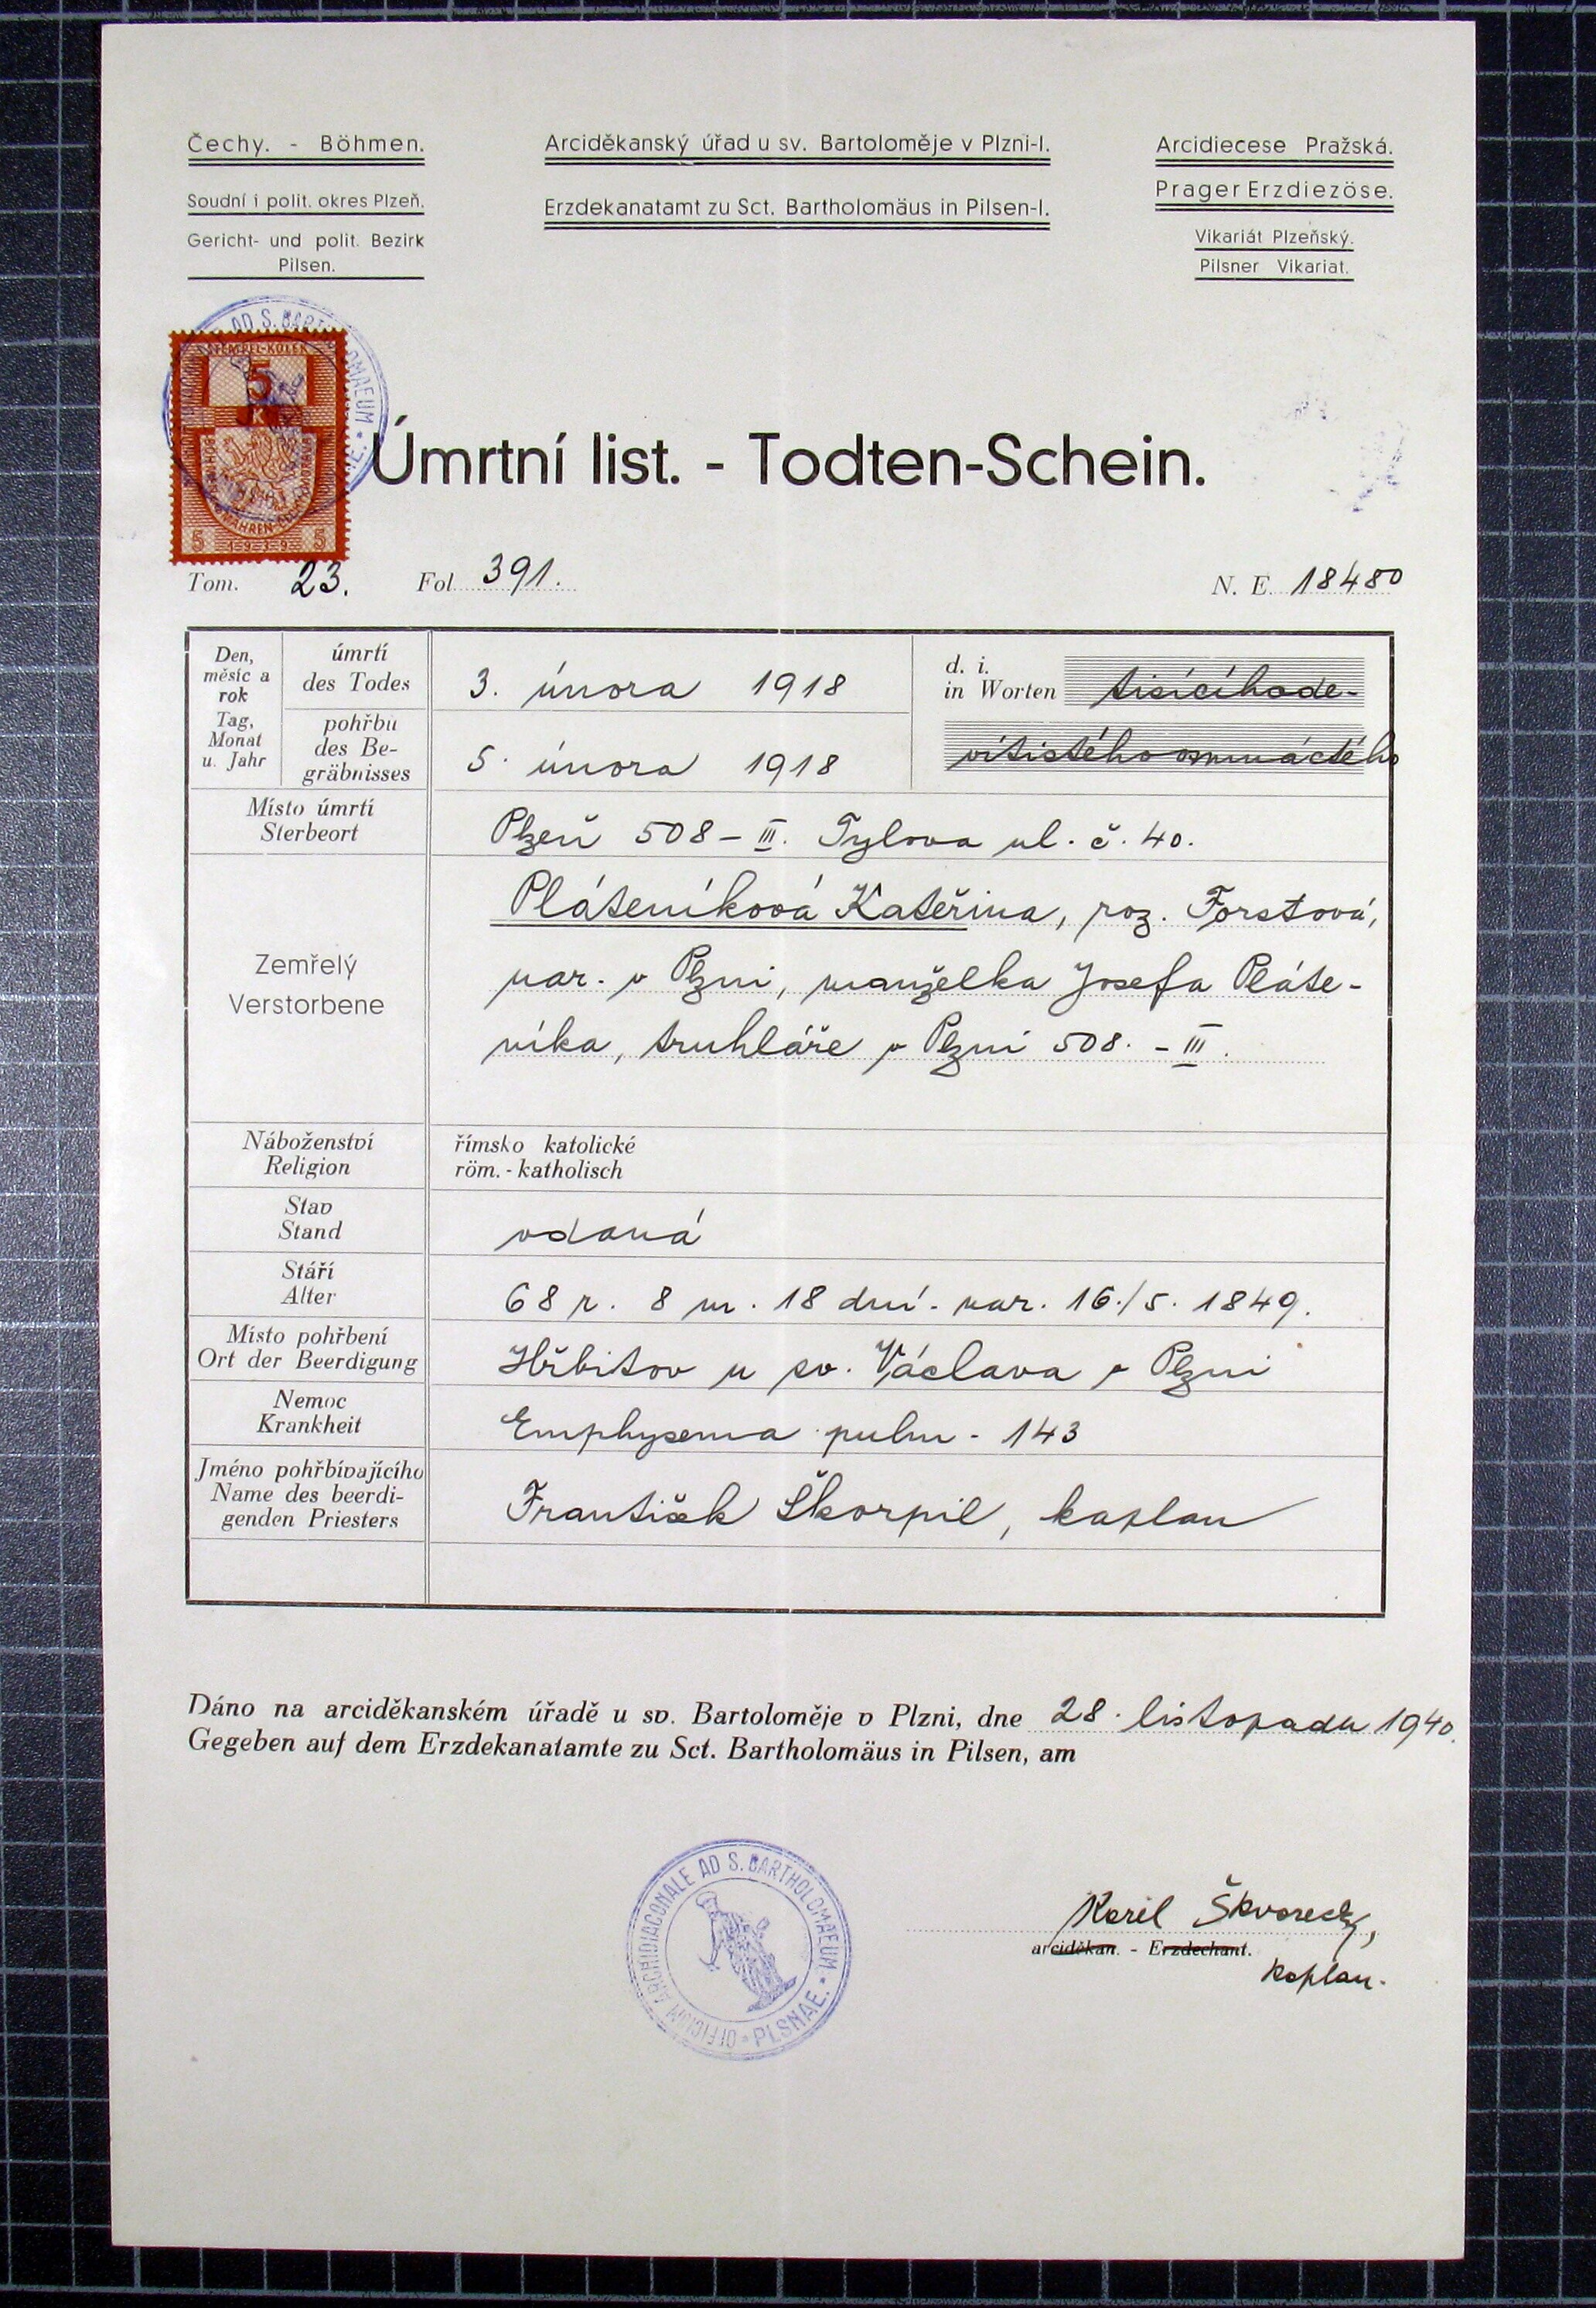 Čechy. - Böhmen.
Soudní i polit. okres Plzeň.
Gericht- und polit. Bezirk
Pilsen.
Arciděkanský úřad u sv. Bartoloměje v Plzni-I.
Erzdekanatamt zu Sct. Bartholomäus in Pilsen-I.
Arcidiecese Pražská.
Prager Erzdiezöse.
Vikariát Plzeňský.
Pilsner Vikariat.
AD S. BARTHOLOMAEUM
STEMPEL-KOLEK
5
K
5 1939 5
Úmrtní list. - Todten-Schein.
Tom. 23. Fol 391. N. E. 18480
Den,
měsíc a
rok
Tag,
Monat
u. Jahr
úmrtí
des Todes
3. února 1918
d. i.
in Worten tisícíhode-
pohřbu
des Be-
gräbnisses
5. února 1918
vítistého osmnáctého
Místo úmrtí
Sterbeort
Plzeň 508 - III. Tylova ul. č. 40.
Zemřelý
Verstorbene
Pláteníková Kateřina, roz. Forstová,
nar. v Plzni, manželka Josefa Pláte-
níka, truhláře v Plzni 508. - III.
Náboženství
Religion
římsko katolické
röm.-katholisch
Stav
Stand
vdaná
Stáří
Alter
68 r. 8 m. 18 dní - nar. 16./5. 1849.
Místo pohřbení
Ort der Beerdigung
Hřbitov u sv. Václava v Plzni
Nemoc
Krankheit
Emphysema pulm - 143
Jméno pohřbívajícího
Name des beerdi-
genden Priesters
František Škorpil, kaplan
Dáno na arciděkanském úřadě u sv. Bartoloměje v Plzni, dne 28. listopadu 1940.
Gegeben auf dem Erzdekanatamte zu Sct. Bartholomäus in Pilsen, am
OFFICIUM ARCHIDIACONALE AD S. BARTHOLOMAEUM * PLSNAE. *
Karel Škvorecký,
arciděkan. - Erzdechant.
kaplan.